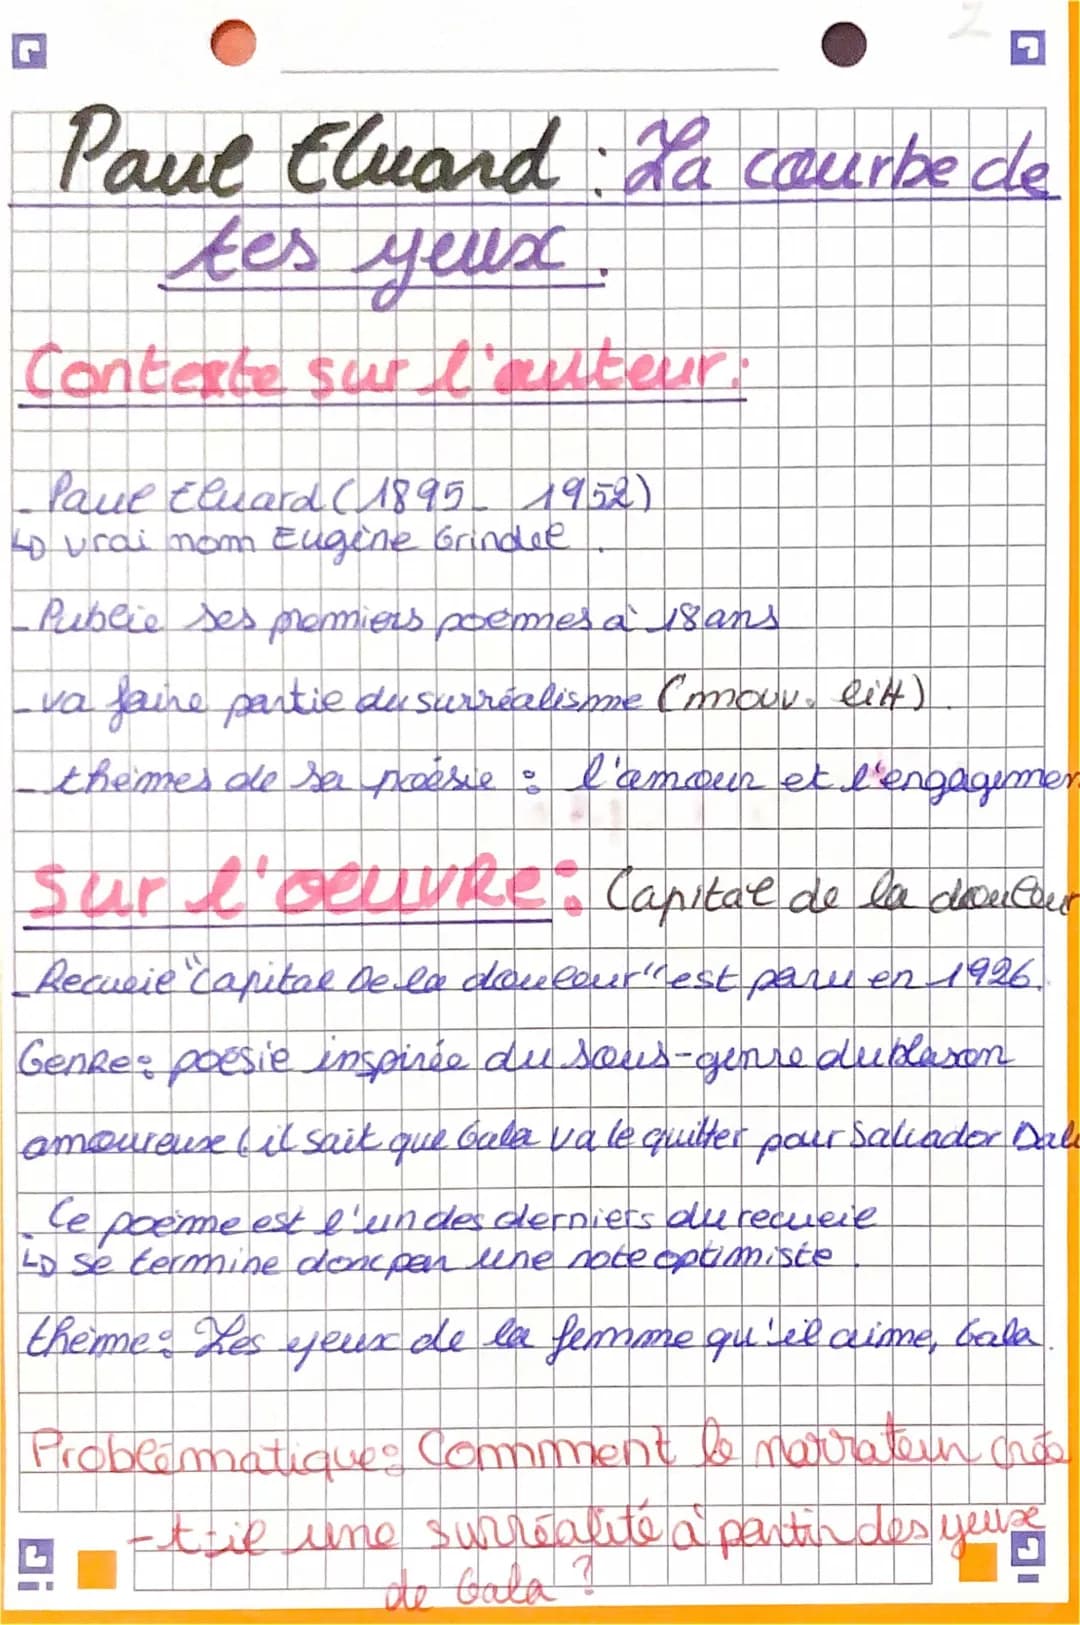 2
Paul Eluard : La courbe de
tes yeux.
Contexte sur l'auteur:
- Paul Eluard (1895- 1952)
↳ vrai nom Eugène Grindel.
- Publie ses premiers poèmes à 18 ans
- va faire partie du surréalisme (mouv. litt).
- thèmes de sa poésie : l'amour et l'engagemen
sur l'oeuvre: Capital de la douleur
- Recueil "Capital De la douleur" est paru en 1926.
Genre: poésie inspirée du sous-genre du blason
amoureux (il sait que Gala va le quitter pour Salvador Dali
- Ce poème est l'un des derniers du recueil
↳ se termine donc par une note optimiste.
thème: Les yeux de la femme qu'il aime, Gala.
Problématique: Comment le narrateur crée
-t-il une surréalité à partir des yeux
de Gala ?